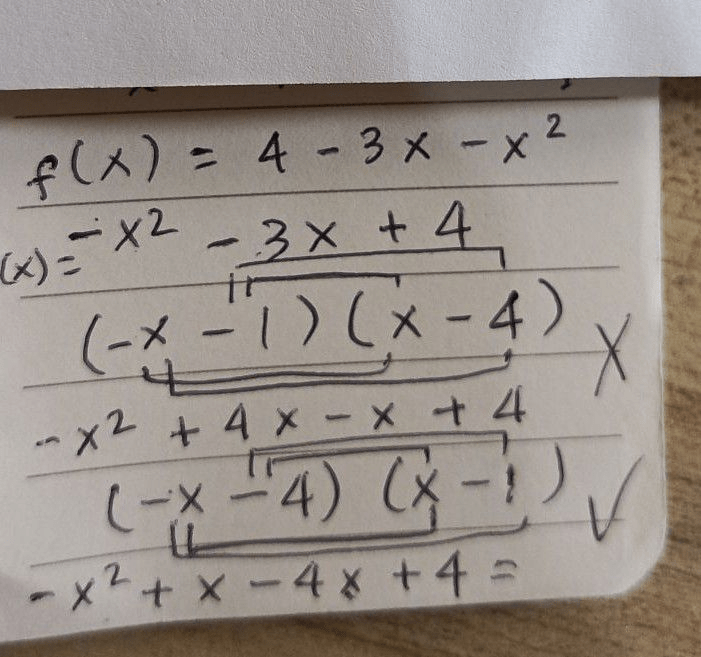 f(x) = 4 - 3x - x²
(x) = -x² - 3x + 4
(-x - 1)(x - 4) X
-x² + 4x - x + 4
(-x - 4) (x - 1) ✓
-x² + x - 4x + 4 =